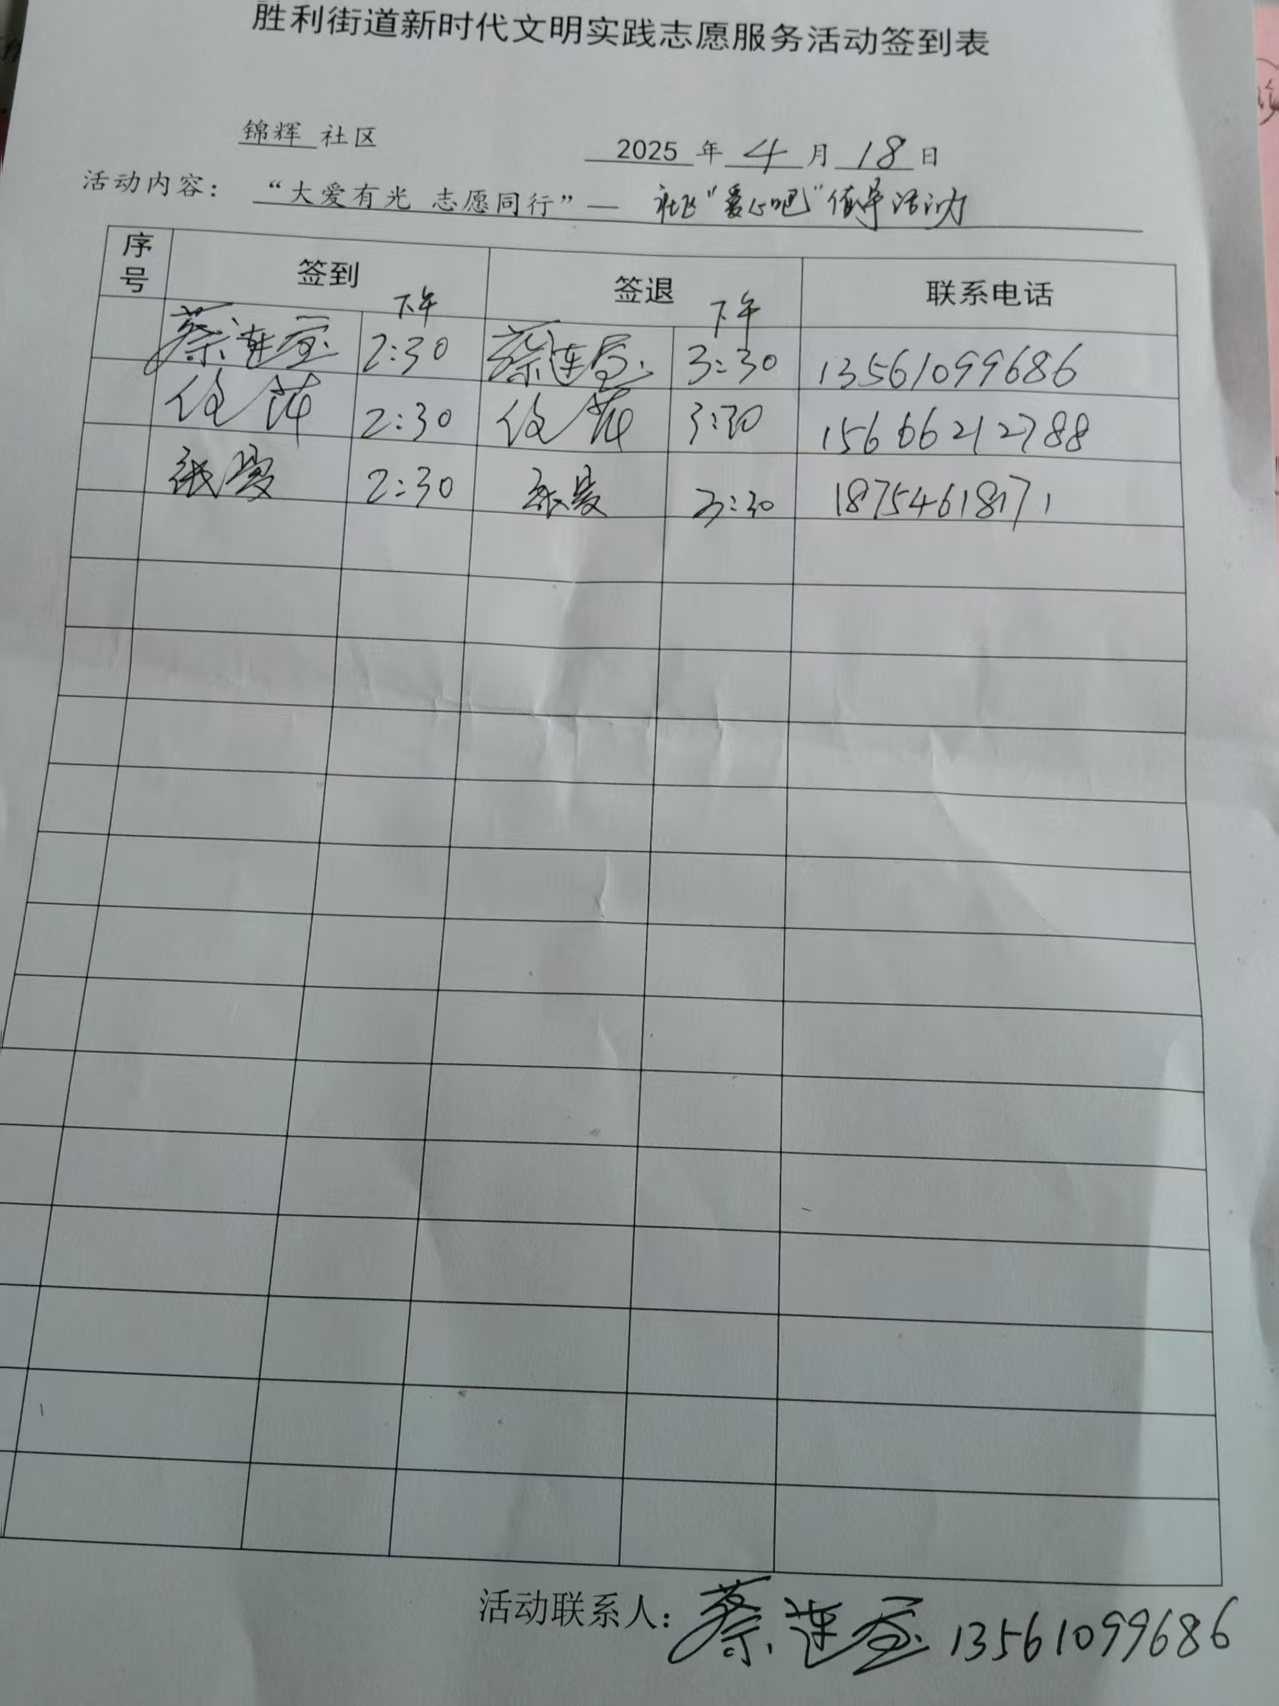 胜利街道新时代文明实践志愿服务活动签到表
锦辉 社区 2025 年 4 月 18 日
活动内容： “大爱有光 志愿同行”— 社区“爱心吧”值导活动
序号 签到 签退 联系电话
下午 下午
蔡连宝 2:30 蔡连宝 3:30 13561099686
萍 2:30 萍 3:30 15666212788
张爱 2:30 张爱 3:30 18754618171
活动联系人：蔡连宝 13561099686